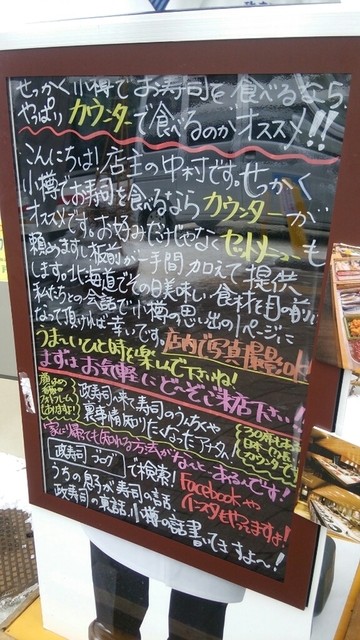 せっかく小樽でお寿司を食べるなら
やっぱりカウンターで食べるのがオススメ!!
こんにちは!店主の中村です。せっかく
小樽でお寿司を食べるならカウンターが
オススメです。お好みだけじゃなくセットメニューも
頼めますし板前が一手間加えて提供
します。北海道でその日美味しい食材を目の前に
私たちとの会話で小樽の思い出の1ページに
なって頂ければ幸いです。店内で写真撮影OK!
うま〜いひと時を楽しんで下さいね!
まずはお気軽にど〜ぞご来店下さい!!
政寿司へ来て寿司のうんちくや
裏事情が知りたくなったアナタ!
家に帰っても知れる方法がなんと、あるんです!
政寿司 ブログ で検索!Facebookや
インスタもやってますよ!
うちの親方が寿司の話
政寿司の裏話、小樽の話書いてますよ〜!